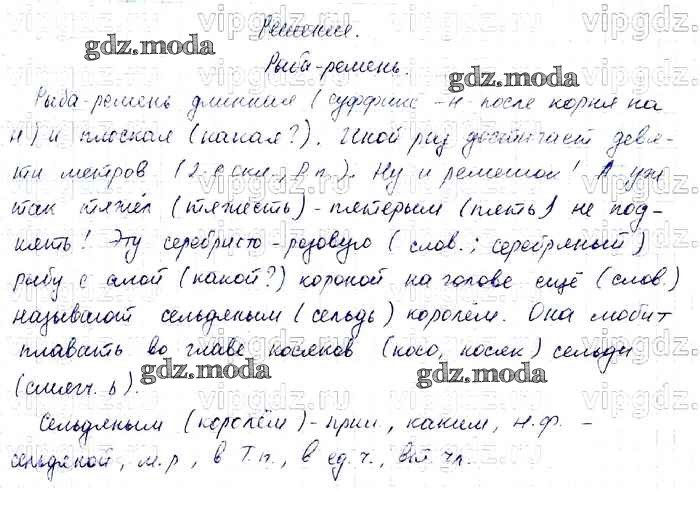 Решение.
Рыба-ремень.
Рыба-ремень длинная (суффикс -н- после корня на
н) и плоская (какая?). Иной раз достигает девя-
ти метров (2-е скл., Р.п.). Ну и ремешок! А уж
так тяжёл (тяжесть) - пятерым (пять) не под-
нять! Эту серебристо-розовую (слов.; серебряный)
рыбу с алой (какой?) короной на голове ещё (слов.)
называют сельдяным (сельдь) королём. Она любит
плавать во главе косяков (косо, косяк) сельди
(смягч. ь).
Сельдяным (королём) - прил., каким, н.ф. -
сельдяной, м.р., в Т.п., в ед.ч., вт. чл.
gdz.moda
gdz.moda
gdz.moda
gdz.moda
vipgdz.com